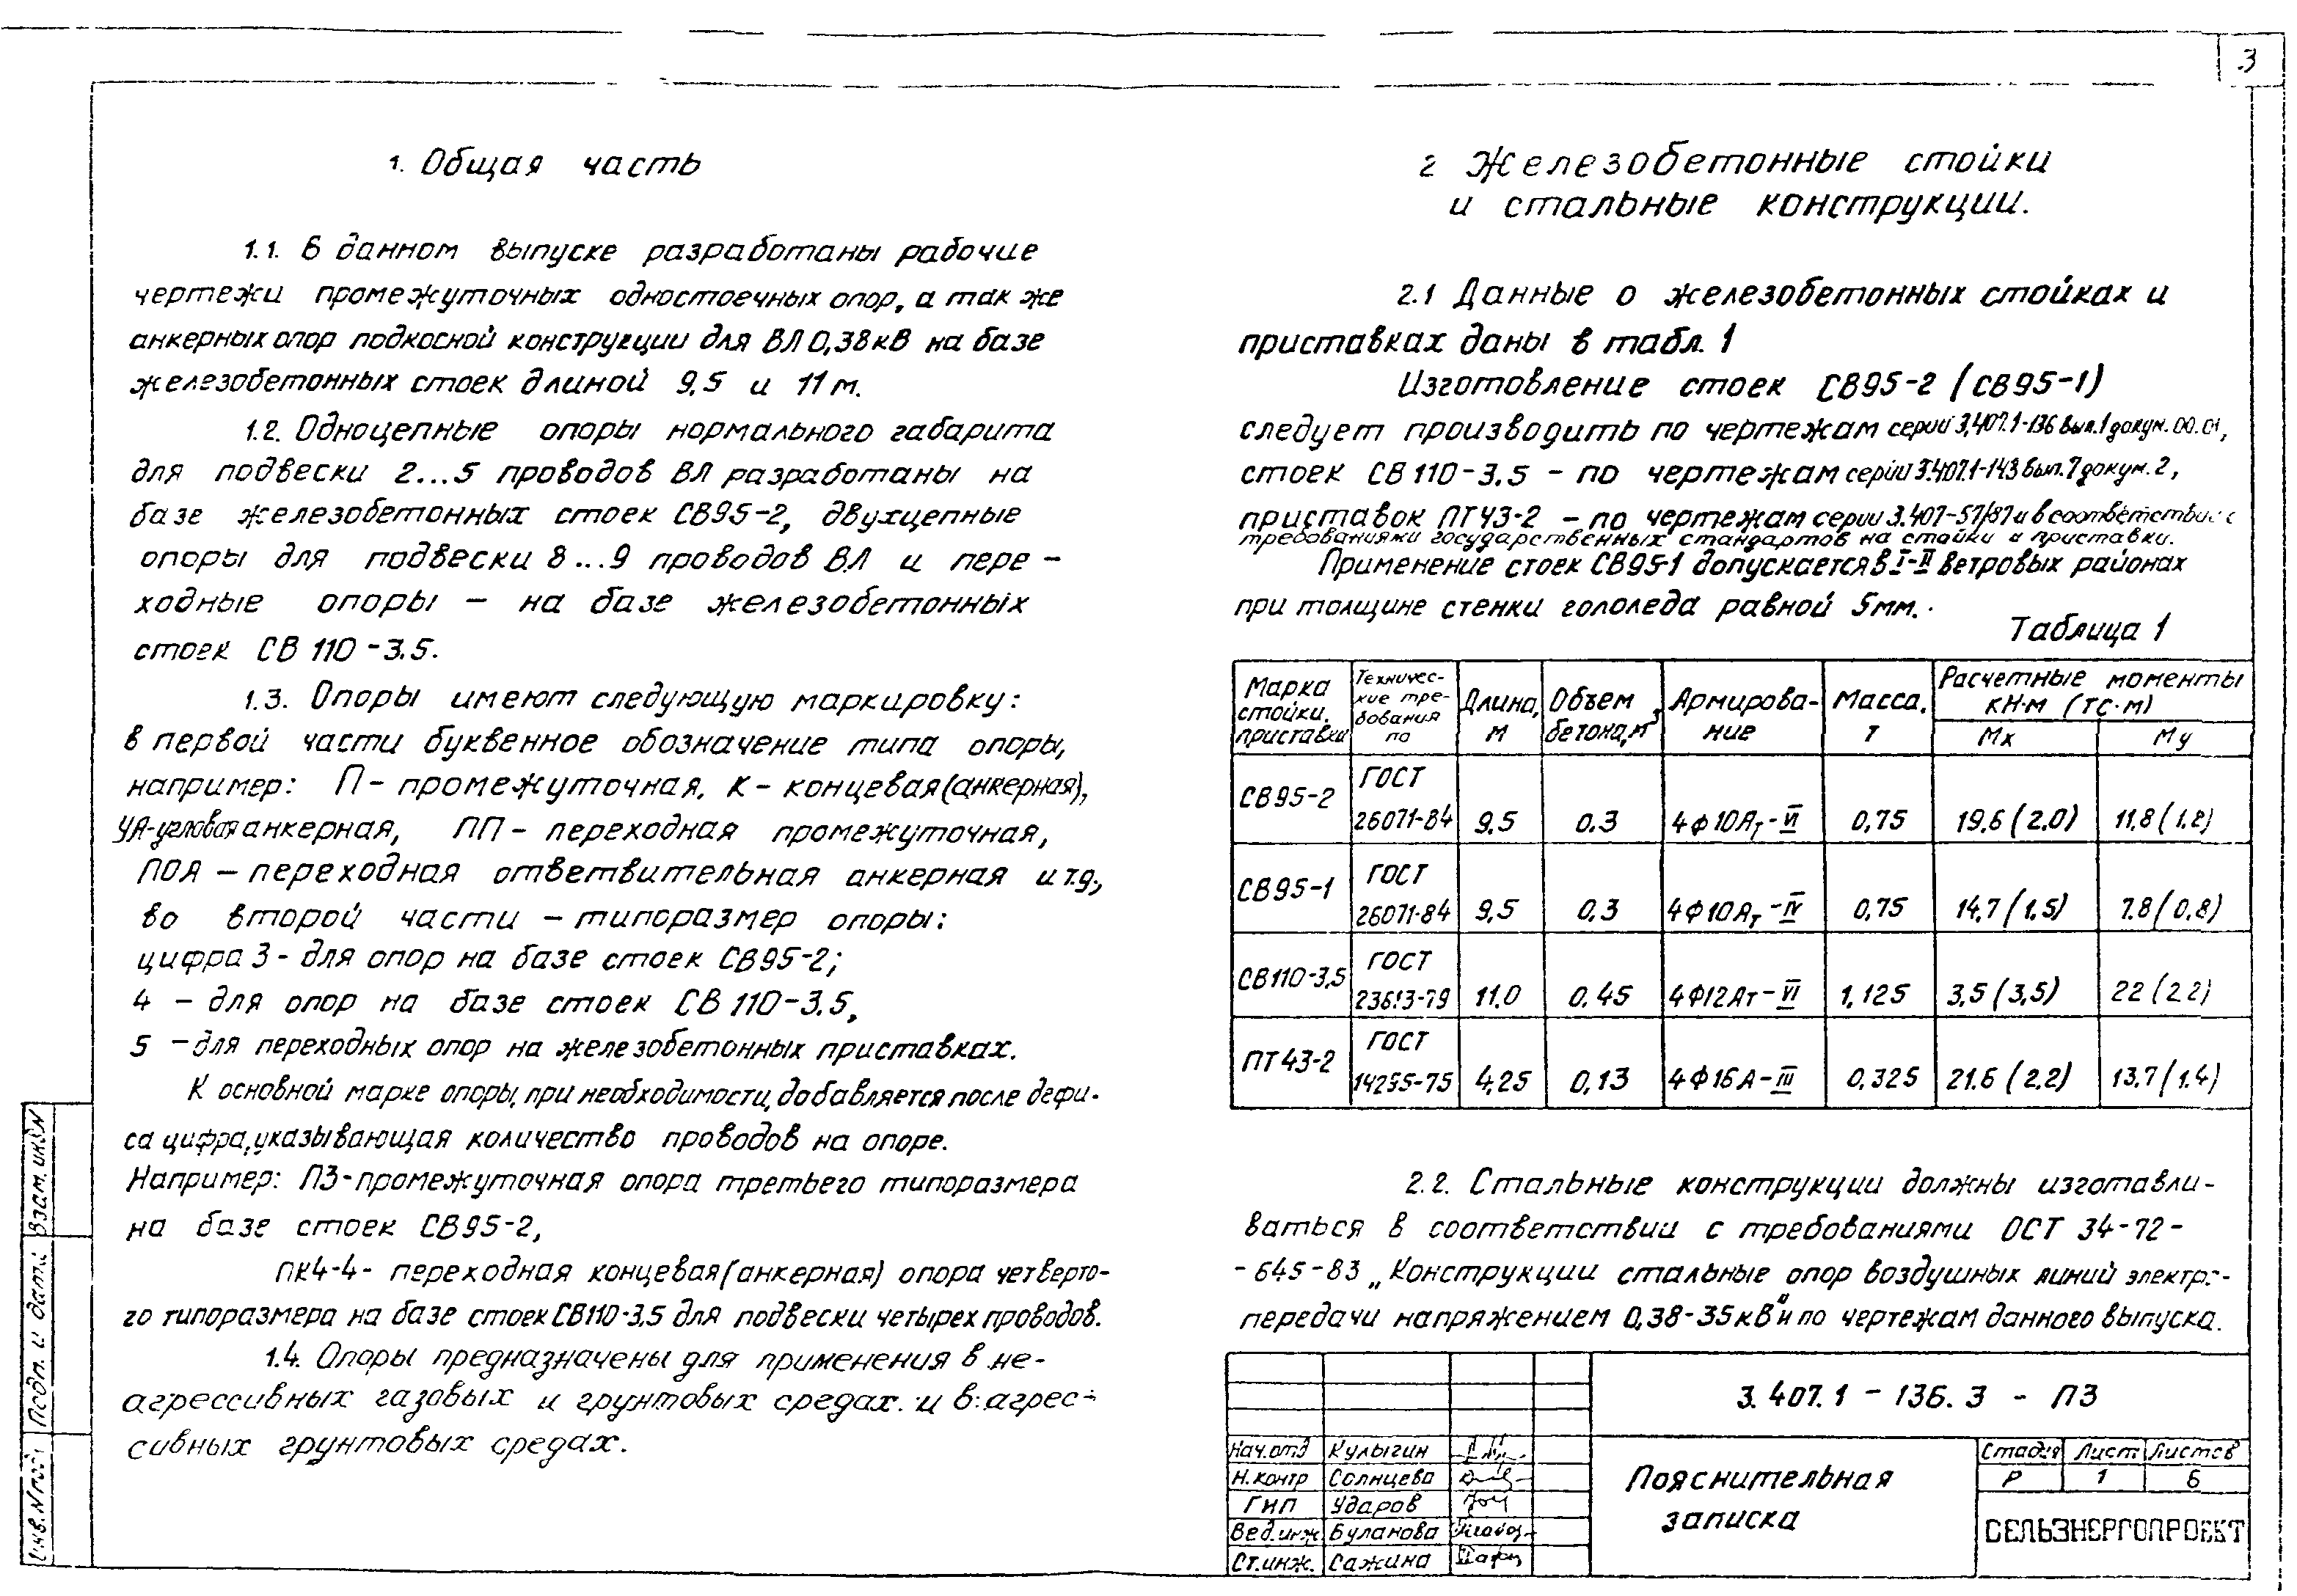 3
1. Общая часть
1.1. В данном выпуске разработаны рабочие
чертежи промежуточных одностоечных опор, а так же
анкерных опор подкосной конструкции для ВЛ 0,38 кВ на базе
железобетонных стоек длиной 9,5 и 11 м.
1.2. Одноцепные опоры нормального габарита
для подвески 2...5 проводов ВЛ разработаны на
базе железобетонных стоек СВ95-2, двухцепные
опоры для подвески 8...9 проводов ВЛ и пере-
ходные опоры – на базе железобетонных
стоек СВ 110-3.5.
1.3. Опоры имеют следующую маркировку:
в первой части буквенное обозначение типа опоры,
например: П – промежуточная, К – концевая (анкерная),
УА-угловая анкерная, ПП – переходная промежуточная,
ПОА – переходная ответвительная анкерная и т.д.,
во второй части – типоразмер опоры:
цифра 3 - для опор на базе стоек СВ95-2;
4 – для опор на базе стоек СВ 110-3.5,
5 – для переходных опор на железобетонных приставках.
К основной марке опоры, при необходимости, добавляется после дефи-
са цифра, указывающая количество проводов на опоре.
Например: П3-промежуточная опора третьего типоразмера
на базе стоек СВ95-2,
ПК4-4- переходная концевая (анкерная) опора четверто-
го типоразмера на базе стоек СВ110-3,5 для подвески четырех проводов.
1.4. Опоры предназначены для применения в не-
агрессивных газовых и грунтовых средах и в агрес-
сивных грунтовых средах.
2 Железобетонные стойки
и стальные конструкции.
2.1 Данные о железобетонных стойках и
приставках даны в табл. 1
Изготовление стоек СВ95-2 (СВ95-1)
следует производить по чертежам серии 3.407.1-136 вып.1 докум. 00.01,
стоек СВ 110-3.5 – по чертежам серии 3.407.1-143 вып.7 докум. 2,
приставок ПТ43-2 – по чертежам серии 3.407-57/87 и в соответствии с
требованиями государственных стандартов на стойки и приставки.
Применение стоек СВ95-1 допускается в I-II ветровых районах
при толщине стенки гололеда равной 5мм.
Таблица 1
Марка стойки, приставки | Технические требования по | Длина, м | Объем бетона, м³ | Армирова-ние | Масса, т | Расчетные моменты кН·м (тс·м) Мх | Му
СВ95-2 | ГОСТ 26071-84 | 9,5 | 0.3 | 4ф10Ат-VI | 0,75 | 19.6 (2.0) | 11,8 (1.2)
СВ95-1 | ГОСТ 26071-84 | 9,5 | 0,3 | 4ф10Ат-IV | 0,75 | 14,7 (1.5) | 7.8 (0,8)
СВ110-3,5 | ГОСТ 23613-79 | 11.0 | 0.45 | 4ф12Ат-VI | 1,125 | 3,5 (3,5) | 22 (2 2)
ПТ43-2 | ГОСТ 14295-75 | 4,25 | 0,13 | 4ф16А-III | 0,325 | 21.6 (2.2) | 13,7 (1.4)
2.2. Стальные конструкции должны изготавли-
ваться в соответствии с требованиями ОСТ 34-72-
-645-83 „Конструкции стальные опор воздушных линий электро-
передачи напряжением 0,38-35кВ" и по чертежам данного выпуска.
3.407.1 – 136.3 - ПЗ
Нач.отд Кулыгин
Н.контр Солнцева
ГИП Ударов
Вед.инж Буланова
Ст.инж. Сажина
Пояснительная
записка
Стадия Лист Листов
Р 1 6
СЕЛЬЭНЕРГОПРОЕКТ
Взам. инв.N
Подп. и дата
Инв.N подл